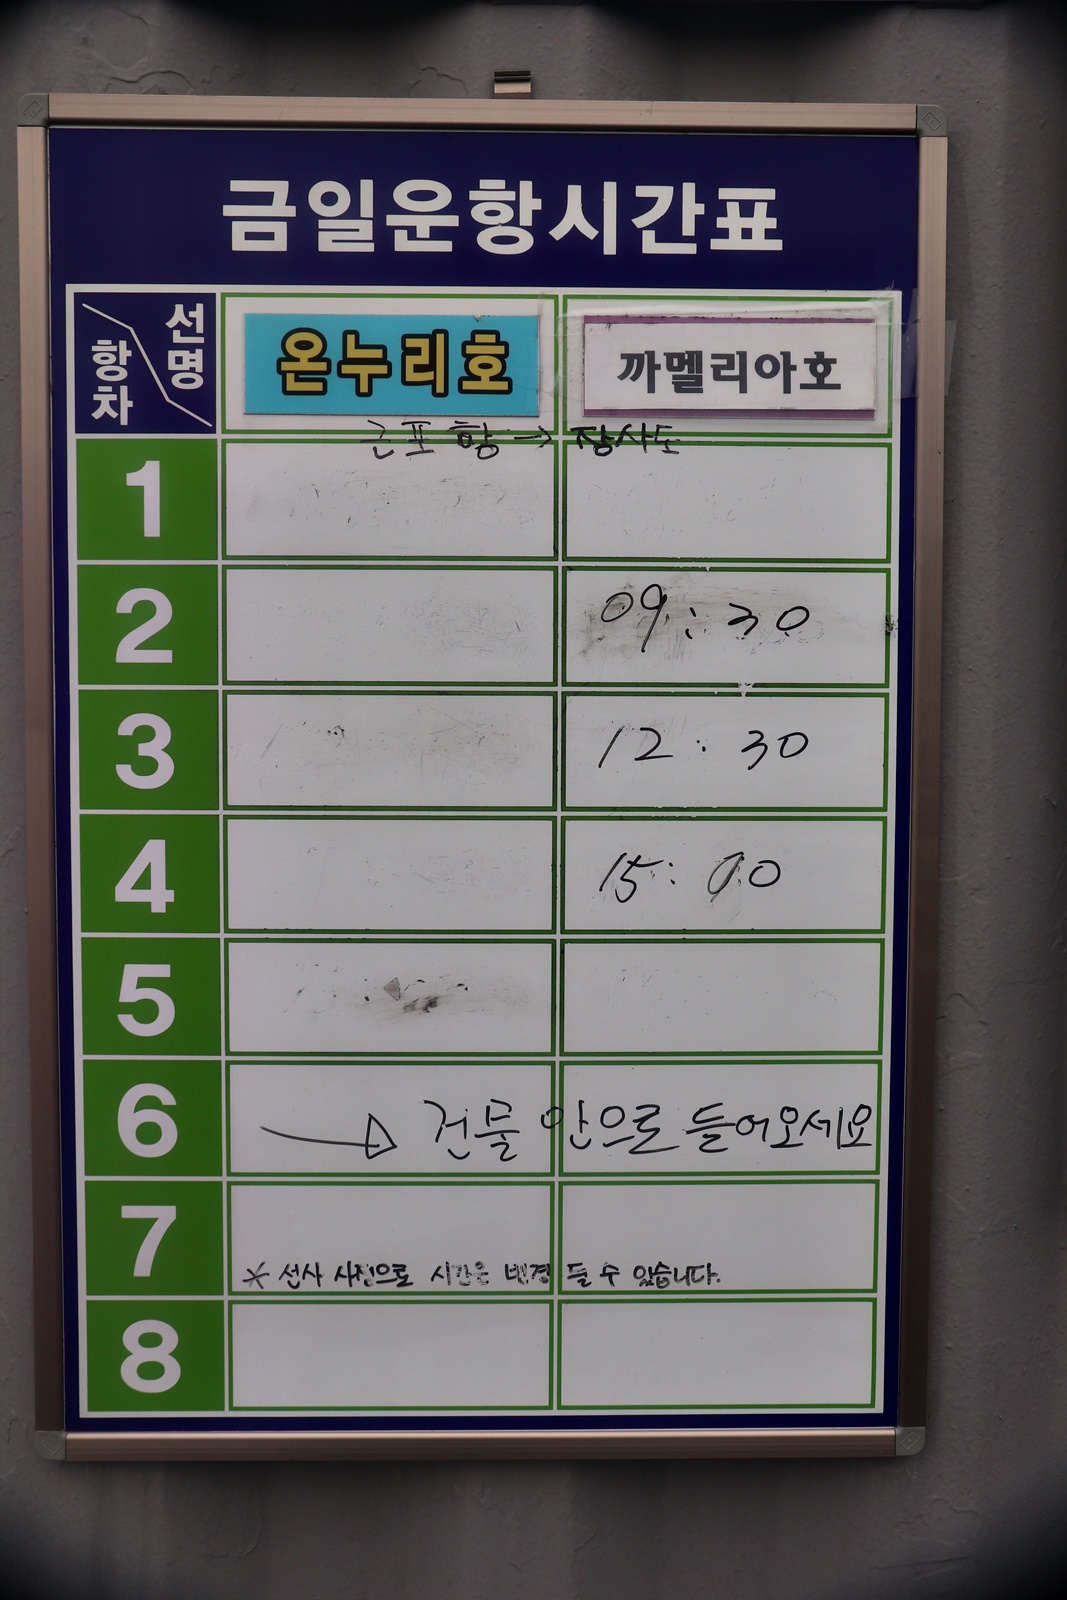 금일운항시간표
선명
항차
온누리호 까멜리아호
근포항 → 장사도
1
2 09:30
3 12:30
4 15:00
5
6 → 건물 안으로 들어오세요
7
* 선사 사정으로 시간은 변경 될 수 있습니다.
8